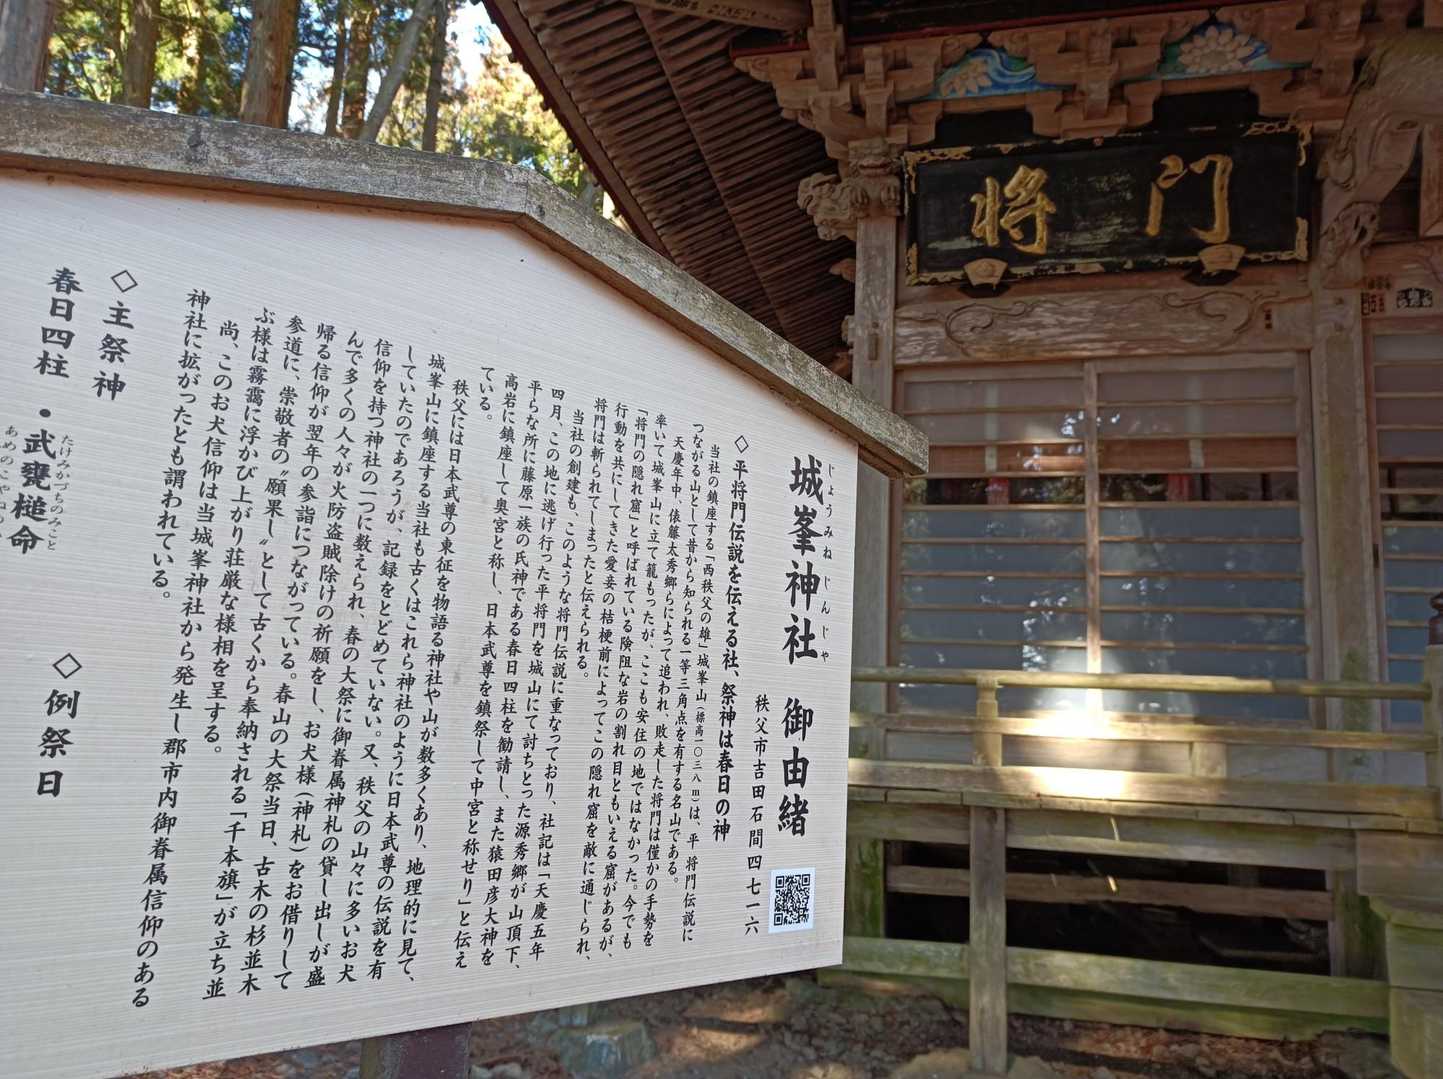 将門
城峯神社　御由緒
じょうみねじんじゃ
秩父市吉田石間四七一六
◇平将門伝説を伝える社、祭神は春日の神
当社の鎮座する「西秩父の雄」城峯山（標高一〇三八ｍ）は、平 将門伝説に
つながる山として昔から知られる一等三角点を有する名山である。
天慶年中、俵藤太秀郷らによって追われ、敗走した将門は僅かの手勢を
率いて城峯山に立て籠もったが、ここも安住の地ではなかった。今でも
「将門の隠れ窟」と呼ばれている険阻な岩の割れ目ともいえる窟があるが、
行動を共にしてきた愛妾の桔梗前によってこの隠れ窟を敵に通じられ、
将門は斬られてしまったと伝えられる。
当社の創建も、このような将門伝説に重なっており、社記は「天慶五年
四月、この地に逃げ行った平将門を城山にて討ちとった源秀郷が山頂下、
平らな所に藤原一族の氏神である春日四柱を勧請し、また猿田彦大神を
高岩に鎮座して奥宮と称し、日本武尊を鎮祭して中宮と称せり」と伝え
ている。
秩父には日本武尊の東征を物語る神社や山が数多くあり、地理的に見て、
城峯山に鎮座する当社も古くはこれら神社のように日本武尊の伝説を有
していたのであろうが、記録をとどめていない。又、秩父の山々に多いお犬
信仰を持つ神社の一つに数えられ、春の大祭に御眷属神札の貸し出しが盛
んで多くの人々が火防盗賊除けの祈願をし、お犬様（神札）をお借りして
帰る信仰が翌年の参詣につながっている。春山の大祭当日、古木の杉並木
参道に、崇敬者の〝願果し〟として古くから奉納される「千本旗」が立ち並
ぶ様は霧靄に浮かび上がり荘厳な様相を呈する。
尚、このお犬信仰は当城峯神社から発生し郡市内御眷属信仰のある
神社に拡がったとも謂われている。
◇主祭神
春日四柱・武甕槌命
たけみかづちのみこと
◇例祭日